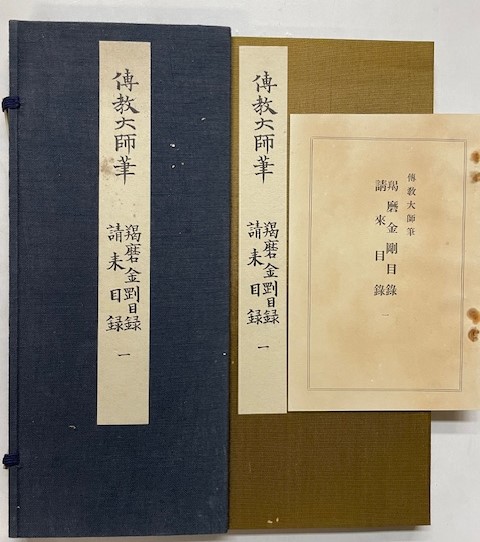 傳教大師筆
羯磨金剛目録
請来目録
一
傳教大師筆
羯磨金剛目録
請来目録
一
傳教大師筆
羯磨金剛目錄
請來目錄
一